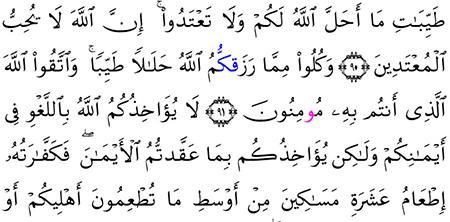 طَيِّبَٰتِ مَا أَحَلَّ ٱللَّهُ لَكُمْ وَلَا تَعْتَدُوٓا۟ۚ إِنَّ ٱللَّهَ لَا يُحِبُّ
ٱلْمُعْتَدِينَ ٩٠ وَكُلُوا۟ مِمَّا رَزَقكُّمُ ٱللَّهُ حَلَٰلًا طَيِّبًاۚ وَٱتَّقُوا۟ ٱللَّهَ
ٱلَّذِى أَنتُم بِهِۦ مُومِنُونَ ٩١ لَا يُؤَاخِذُكُمُ ٱللَّهُ بِٱللَّغْوِ فِى
أَيْمَٰنِكُمْ وَلَٰكِن يُؤَاخِذُكُم بِمَا عَقَّدتُّمُ ٱلْأَيْمَٰنَۖ فَكَفَّٰرَتُهُۥ
إِطْعَامُ عَشَرَةِ مَسَٰكِينَ مِنْ أَوْسَطِ مَا تُطْعِمُونَ أَهْلِيكُمْ أَوْ